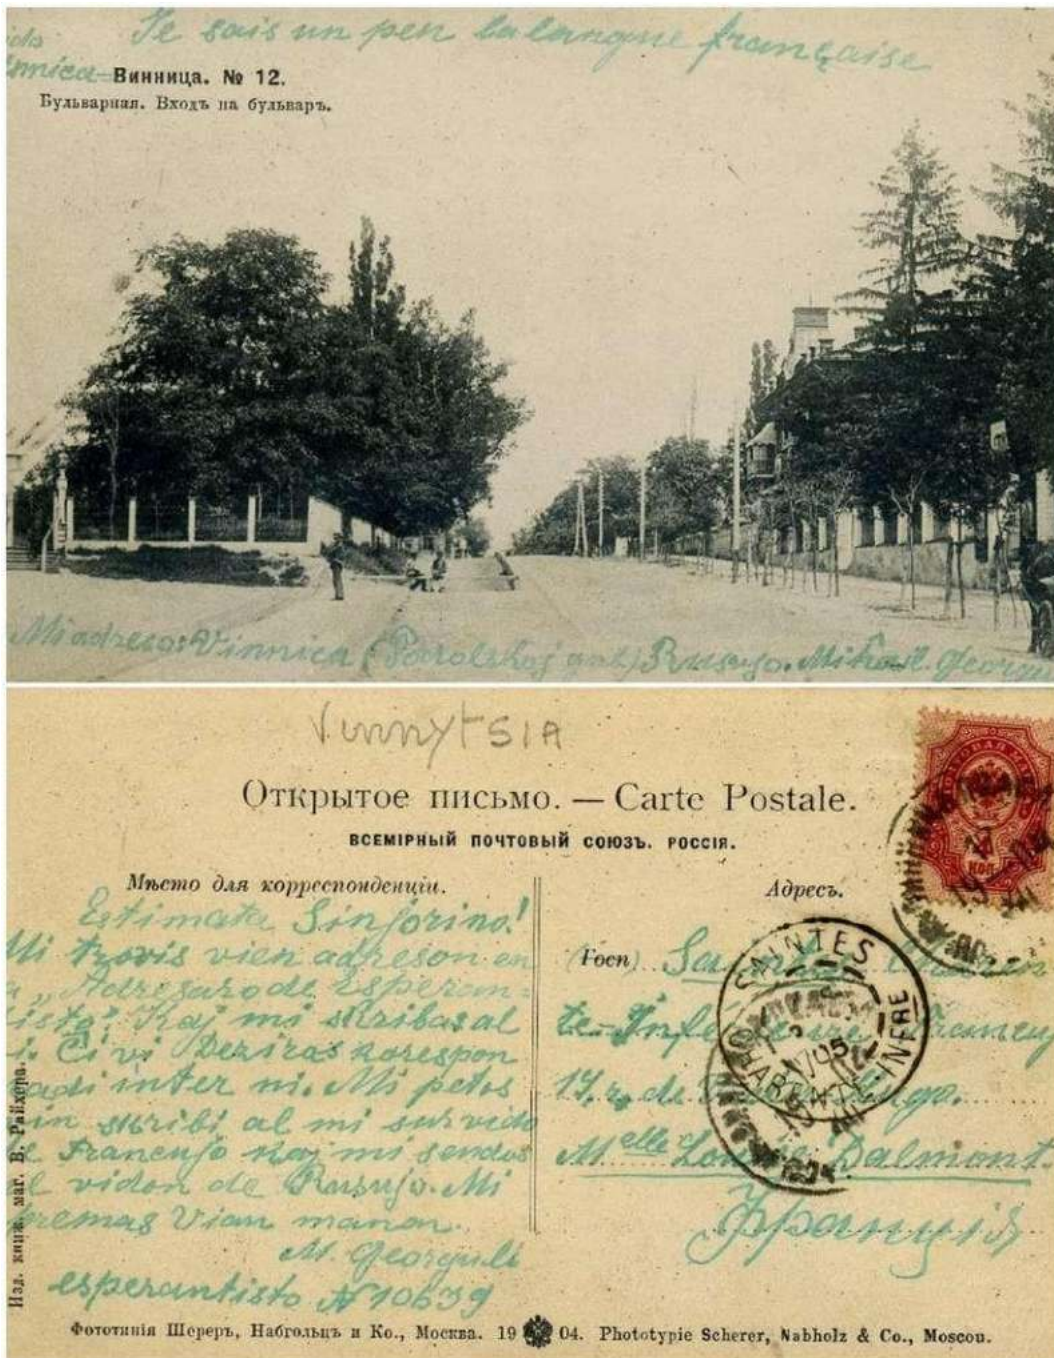 Je sais un peu la langue française
Винница. № 12.
Бульварная. Входъ на бульваръ.
Mi adreso: Vinnica Rusujo. Mihail Georgu
Vinnytsia
Открытое письмо. — Carte Postale.
ВСЕМІРНЫЙ ПОЧТОВЫЙ СОЮЗЪ. РОССІЯ.
Мѣсто для корреспонденціи.
Estimata Sinjorino!
Mi trovis vian adreson en
„Adresaro de Esperan-
isto". Kaj mi skribas al
Ĉi vi deziras korespon
adi inter ni. Mi petas
in skribi al mi sur vido
Francujo kaj mi sendos
vidon de Rusujo. Mi
premas vian manon.
M. Georguli
esperantisto № 10639
Изд. книж. маг. В. Райхера.
Адресъ.
(Госп)
te-Inférieure
17, r. de
Mlle Dalmont.
Франція
SAINTES
CHARENTE-INFRE
Фототипія Шереръ, Набгольцъ и Ко., Москва. 19 04. Phototypie Scherer, Nabholz & Co., Moscou.